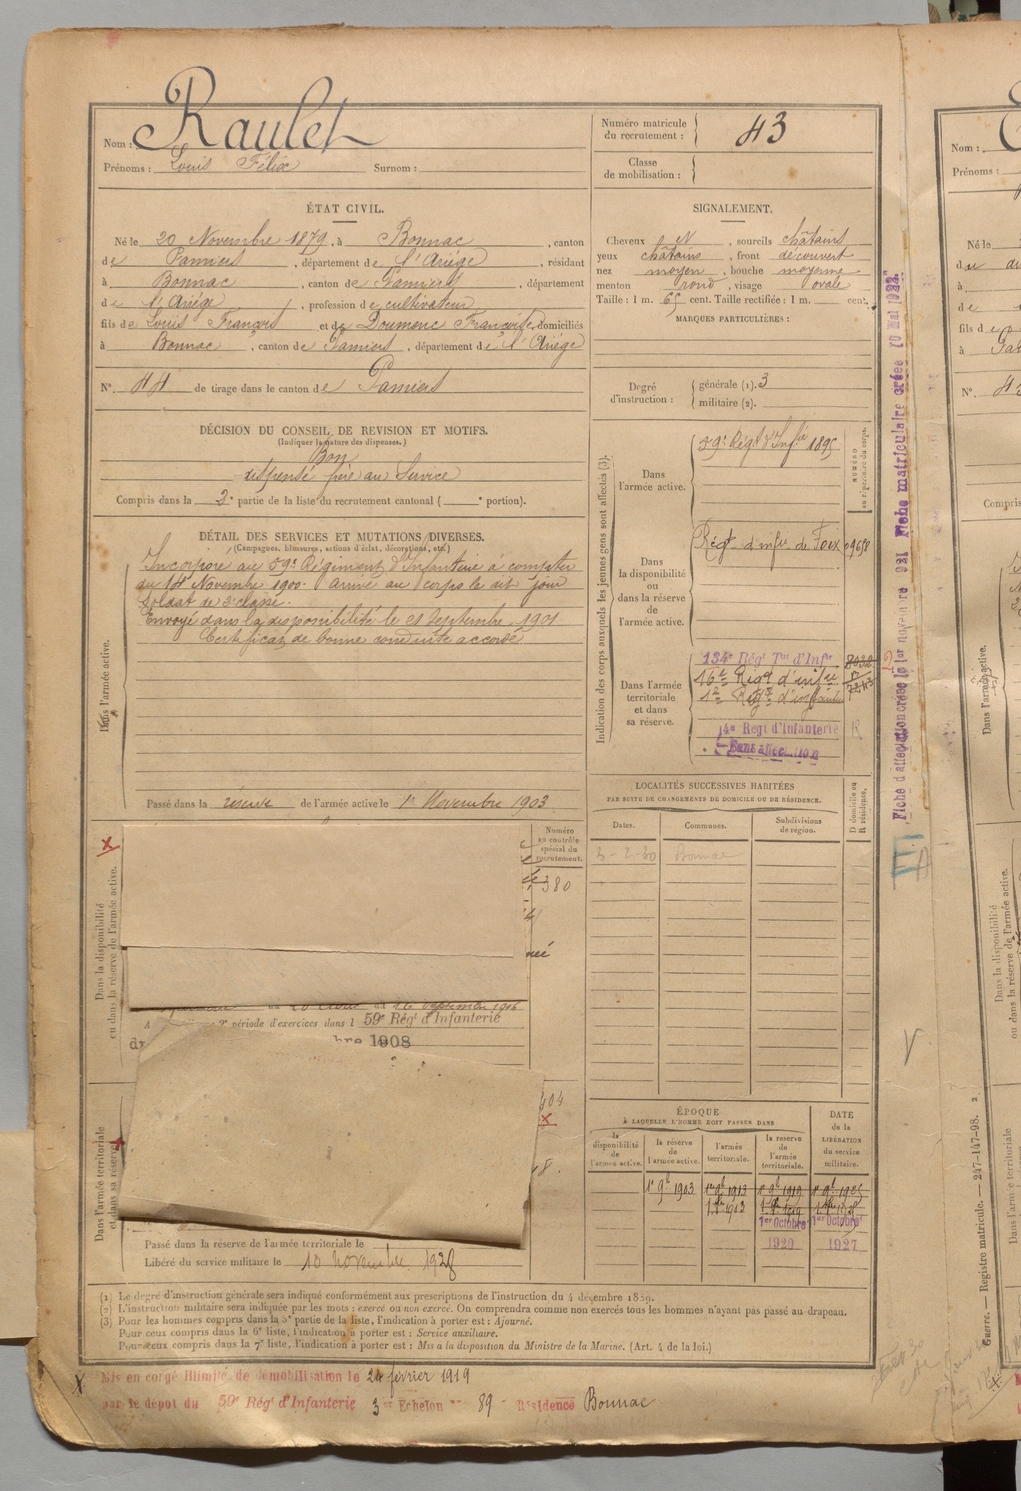 Nom : Raulet
Prénoms : Louis Félix Surnom :
ÉTAT CIVIL.
Né le 20 Novembre 1879, à Bonnac, canton
de Pamiers, département de l'Ariège, résidant
à Bonnac, canton de Pamiers, département
de l'Ariège, profession de cultivateur
fils de Louis François et de Doumenc Françoise, domiciliés
à Bonnac, canton de Pamiers, département de l'Ariège
N° 44 de tirage dans le canton de Pamiers
DÉCISION DU CONSEIL DE REVISION ET MOTIFS.
(Indiquer la nature des dispenses.)
Bon
dispensé frère au Service
Compris dans la 2e partie de la liste du recrutement cantonal ( e portion).
DÉTAIL DES SERVICES ET MUTATIONS DIVERSES.
(Campagnes, blessures, actions d'éclat, décorations, etc.)
Dans l'armée active.
Incorporé au 59e Régiment d'Infanterie à compter
du 14 Novembre 1900. Arrivé au corps le dit jour
Soldat de 2e classe.
Envoyé dans la disponibilité le 21 Septembre 1901
Certificat de bonne conduite accordé
Passé dans la réserve de l'armée active le 1er Novembre 1903
Dans la disponibilité
ou dans la réserve de l'armée active.
Numéro
au contrôle
spécial du
recrutement.
380
Septembre 1906
période d'exercices dans l 59e Régt d'Infanterie
bre 1908
Dans l'armée territoriale
et dans sa réserve.
Passé dans la réserve de l'armée territoriale le
Libéré du service militaire le 10 novembre 1928
Numéro matricule
du recrutement : 43
Classe
de mobilisation :
SIGNALEMENT.
Cheveux N, sourcils châtains
yeux châtains, front découvert
nez moyen, bouche moyenne
menton rond, visage ovale
Taille : 1 m. 65 cent. Taille rectifiée : 1 m. cent.
MARQUES PARTICULIÈRES :
Degré
d'instruction :
générale (1). 3
militaire (2).
Indication des corps auxquels les jeunes gens sont affectés (3).
NUMÉRO
au répertoire du corps.
Dans
l'armée active.
59e Régt d'Infie 1895
Dans
la disponibilité
ou
dans la réserve
de
l'armée active.
Régt d'infie de Foix 09658
Dans l'armée
territoriale
et dans
sa réserve.
134e Régt Tal d'Infie
16e Régt d'infie
14e Régt d'Infanterie
Sans affect.
LOCALITÉS SUCCESSIVES HABITÉES
PAR SUITE DE CHANGEMENTS DE DOMICILE OU DE RÉSIDENCE.
Dates. Communes. Subdivisions
de région.
D domicile ou
R résidence.
3-2-20 Bonnac
ÉPOQUE
À LAQUELLE L'HOMME DOIT PASSER DANS
DATE
de la
LIBÉRATION
du service
militaire.
la
disponibilité
de
l'armée active.
la réserve
de
l'armée active.
l'armée
territoriale.
la réserve
de
l'armée
territoriale.
1er 9b 1903 1er 9b 1913 1er 9b 1919 1er 9b 1925
1er Octobre 1er Octobre
1920 1927
(1) Le degré d'instruction générale sera indiqué conformément aux prescriptions de l'instruction du 4 décembre 1889.
(2) L'instruction militaire sera indiquée par les mots : exercé ou non exercé. On comprendra comme non exercés tous les hommes n'ayant pas passé au drapeau.
(3) Pour les hommes compris dans la 5e partie de la liste, l'indication à porter est : Ajourné.
Pour ceux compris dans la 6e liste, l'indication à porter est : Service auxiliaire.
Pour ceux compris dans la 7e liste, l'indication à porter est : Mis à la disposition du Ministre de la Marine. (Art. 4 de la loi.)
Mis en congé illimité de démobilisation le 24 février 1919
par le dépôt du 59e Régt d'Infanterie 3e Echelon n° 89 - Résidence Bonnac
Fiche d'affectation créée le 1er novembre 921 Fiche matriculaire créée 10 Mai 1922.
Guerre. — Registre matricule. — 247-147-98.
Nom :
Prénoms :
Né le
fils de
à
N°
Compris
Dans l'armée active.
Dans la disponibilité
ou dans la réserve de l'armée active.
Dans l'armée territoriale